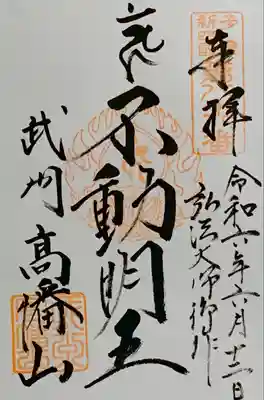 奉拝
令和六年六月十二日
弘法大師御作
不動明王
武州 高幡山